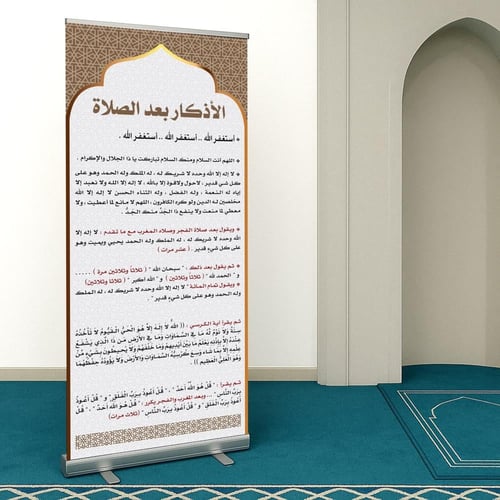 الأذكار بعد الصلاة
* أستغفر الله .. أستغفر الله .. أستغفر الله .
* اللهم أنت السلام ومنك السلام تباركت يا ذا الجلال والإكرام .
* لا إله إلا الله وحده لا شريك له ، له الملك وله الحمد وهو على
كل شيء قدير ، لا حول ولا قوة إلا بالله ، لا إله إلا الله ولا نعبد إلا
إياه له النعمة ، وله الفضل ، وله الثناء الحسن لا إله إلا الله
مخلصين له الدين ولو كره الكافرون ، اللهم لا مانع لما أعطيت ، ولا
معطي لما منعت ولا ينفع ذا الجَدِّ منك الجَدُّ .
* ويقول بعد صلاة الفجر وصلاه المغرب مع ما تقدم : لا إله إلا
الله وحده لا شريك له ، له الملك وله الحمد يحيي ويميت وهو
على كل شيء قدير . ( عشر مرات )
* ثم يقول بعد ذلك : " سبحان الله " ( ثلاثاً وثلاثين مرة ) .....
و " الحمد لله " ( ثلاثاً وثلاثين ) و " الله أكبر " (ثلاثاً وثلاثين)
* ويقول تمام المائة " لا إله إلا الله وحده لا شريك له ، له الملك
وله الحمد وهو على كل شيء قدير " .
ثم يقرأ آية الكرسي : (( اللَّهُ لَا إِلَهَ إِلَّا هُوَ الْحَيُّ الْقَيُّومُ لَا تَأْخُذُهُ
سِنَةٌ وَلَا نَوْمٌ لَهُ مَا فِي السَّمَاوَاتِ وَمَا فِي الْأَرْضِ مَن ذَا الَّذِي يَشْفَعُ
عِنْدَهُ إِلَّا بِإِذْنِهِ يَعْلَمُ مَا بَيْنَ أَيْدِيهِمْ وَمَا خَلْفَهُمْ وَلَا يُحِيطُونَ بِشَيْءٍ مِّنْ
عِلْمِهِ إِلَّا بِمَا شَاءَ وَسِعَ كُرْسِيُّهُ السَّمَاوَاتِ وَالْأَرْضَ وَلَا يَؤُودُهُ حِفْظُهُمَا
وَهُوَ الْعَلِيُّ الْعَظِيمُ )) .
ثم يقرأ : " قُلْ هُوَ اللَّهُ أَحَدٌ " ، " قُلْ أَعُوذُ بِرَبِّ الْفَلَقِ" و " قُلْ أَعُوذُ
بِرَبِّ النَّاسِ " ... وبعد المغرب والفجر يكرر : " قُلْ هُوَ اللَّهُ أَحَدٌ " ، " قُلْ
أَعُوذُ بِرَبِّ الْفَلَقِ " و " قُلْ أَعُوذُ بِرَبِّ النَّاسِ " (ثلاث مرات)